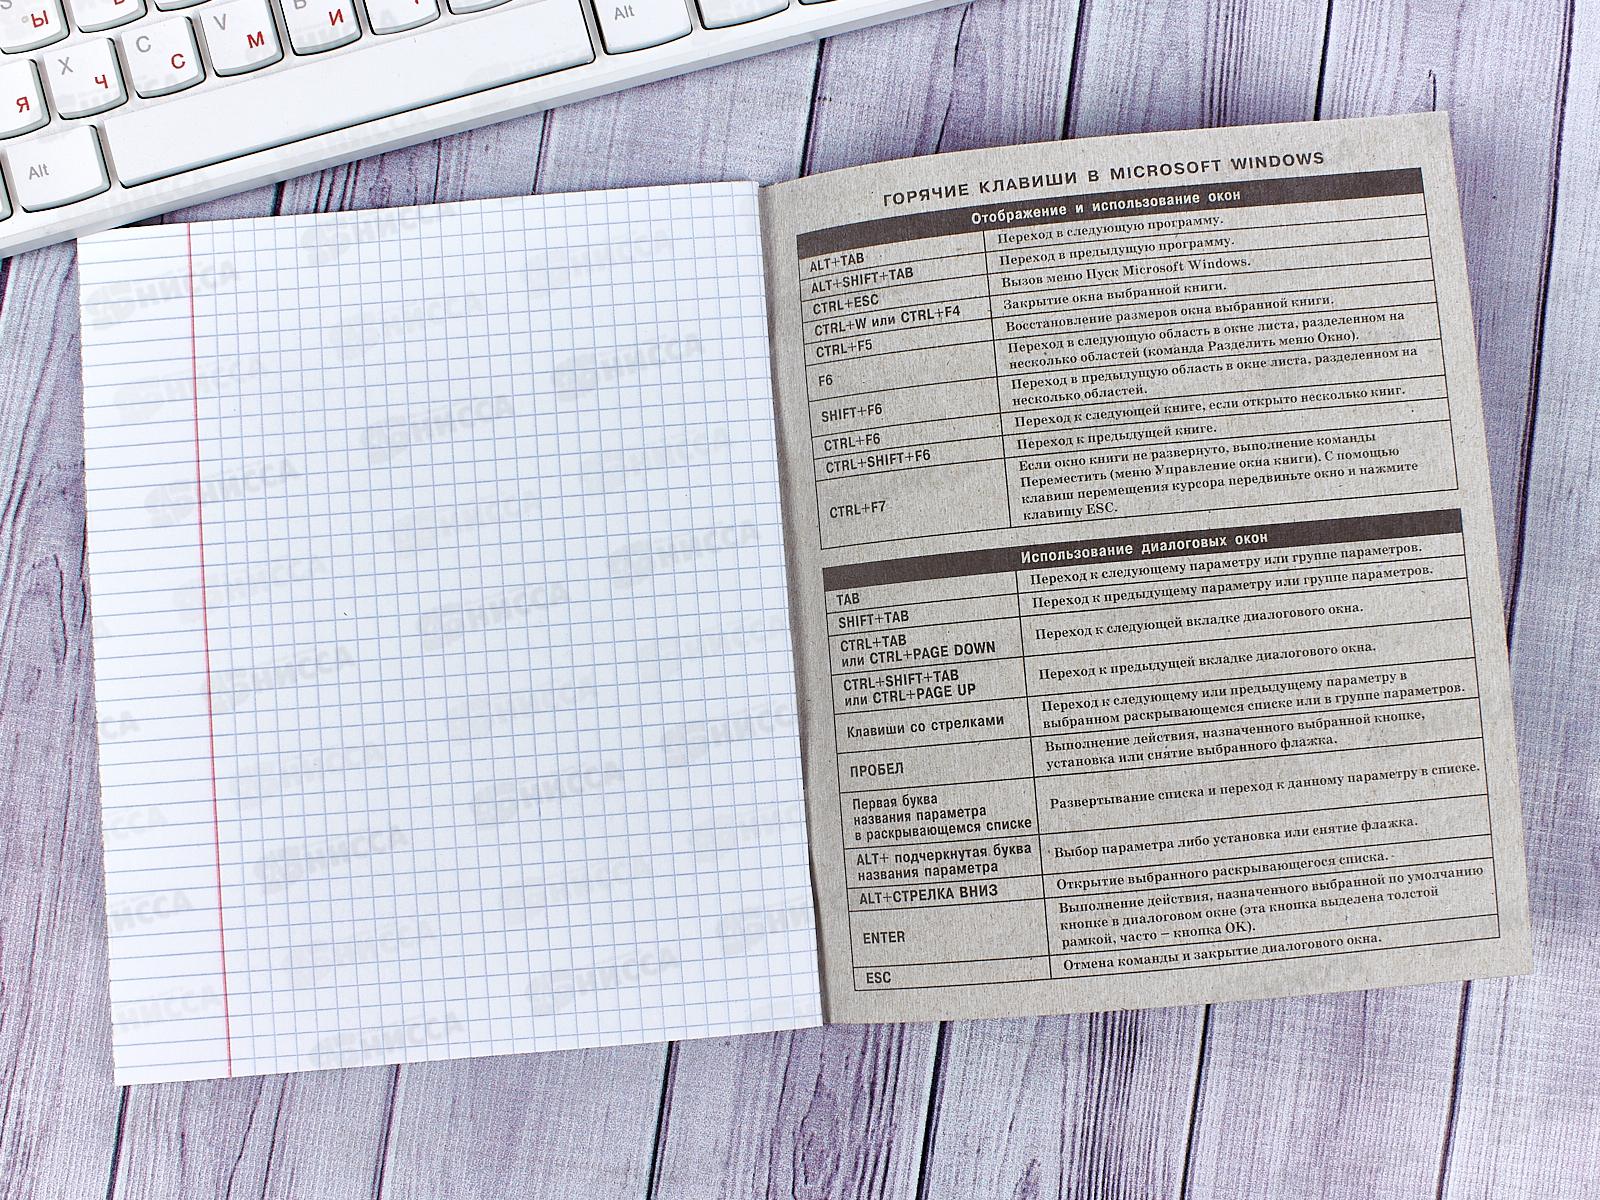 Ы
В
И
Alt
X Ч
C С
V М
Я
Alt
ГОРЯЧИЕ КЛАВИШИ В MICROSOFT WINDOWS
Отображение и использование окон
ALT+TAB Переход в следующую программу.
ALT+SHIFT+TAB Переход в предыдущую программу.
CTRL+ESC Вызов меню Пуск Microsoft Windows.
CTRL+W или CTRL+F4 Закрытие окна выбранной книги.
CTRL+F5 Восстановление размеров окна выбранной книги.
F6 Переход в следующую область в окне листа, разделенном на
несколько областей (команда Разделить меню Окно).
SHIFT+F6 Переход в предыдущую область в окне листа, разделенном на
несколько областей.
CTRL+F6 Переход к следующей книге, если открыто несколько книг.
CTRL+SHIFT+F6 Переход к предыдущей книге.
CTRL+F7 Если окно книги не развернуто, выполнение команды
Переместить (меню Управление окна книги). С помощью
клавиш перемещения курсора передвиньте окно и нажмите
клавишу ESC.
Использование диалоговых окон
TAB Переход к следующему параметру или группе параметров.
SHIFT+TAB Переход к предыдущему параметру или группе параметров.
CTRL+TAB
или CTRL+PAGE DOWN Переход к следующей вкладке диалогового окна.
CTRL+SHIFT+TAB
или CTRL+PAGE UP Переход к предыдущей вкладке диалогового окна.
Клавиши со стрелками Переход к следующему или предыдущему параметру в
выбранном раскрывающемся списке или в группе параметров.
ПРОБЕЛ Выполнение действия, назначенного выбранной кнопке,
установка или снятие выбранного флажка.
Первая буква
названия параметра
в раскрывающемся списке Развертывание списка и переход к данному параметру в списке.
ALT+ подчеркнутая буква
названия параметра Выбор параметра либо установка или снятие флажка.
ALT+СТРЕЛКА ВНИЗ Открытие выбранного раскрывающегося списка.
ENTER Выполнение действия, назначенного выбранной по умолчанию
кнопке в диалоговом окне (эта кнопка выделена толстой
рамкой, часто – кнопка OK).
ESC Отмена команды и закрытие диалогового окна.